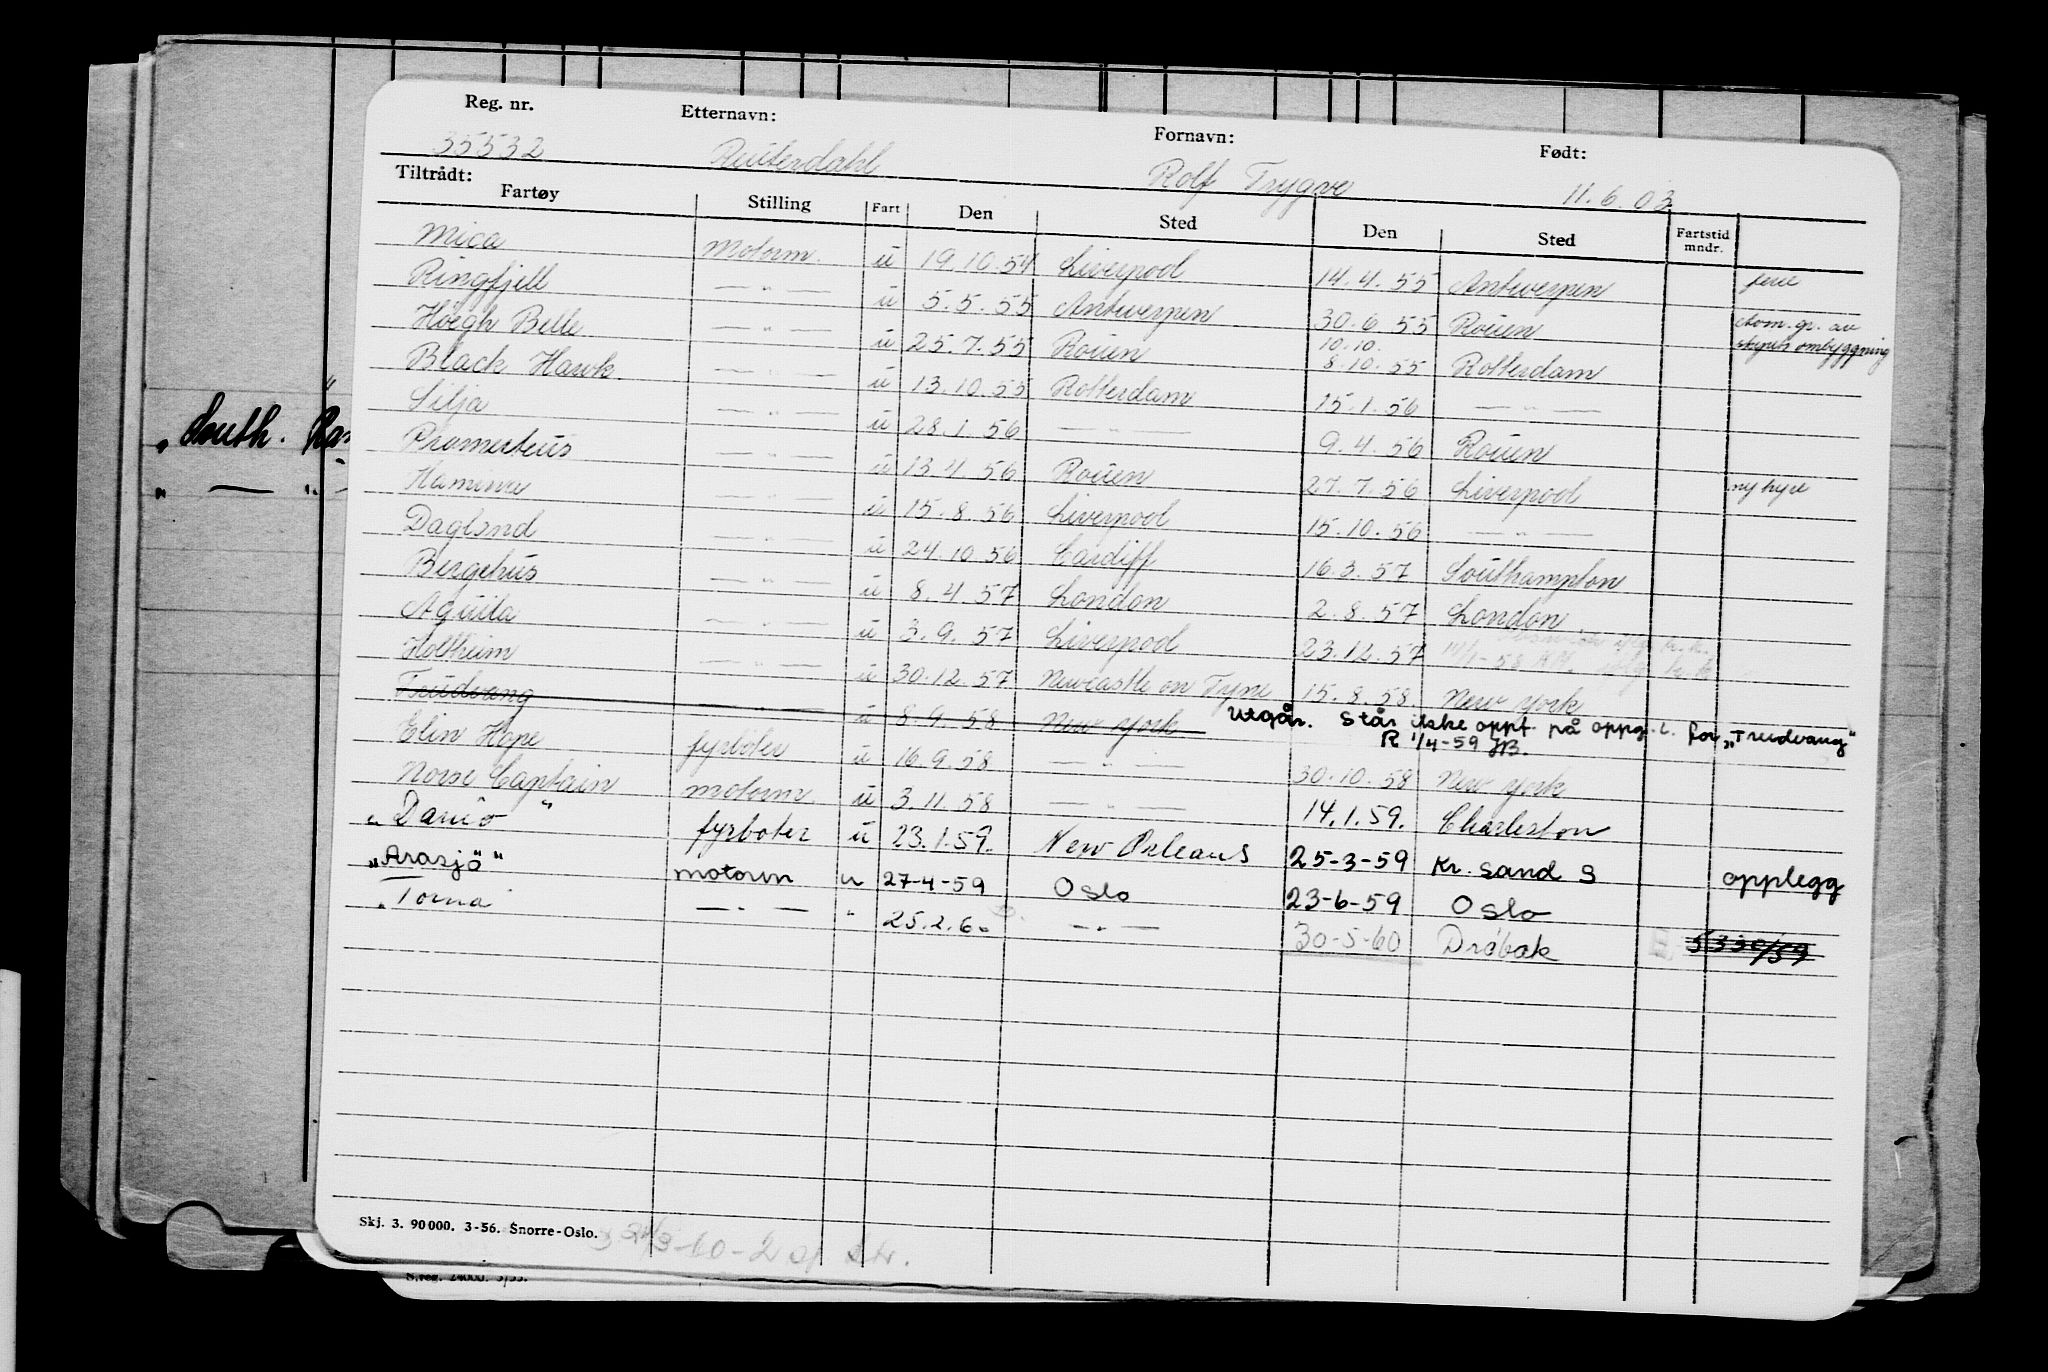 Reg. nr. Etternavn: Fornavn: Født:
35532 Ruterdahl Rolf Trygve 11.6.03
Tiltrådt:
Fartøy Stilling Fart Den Sted Den Sted Fartstid mndr.
Mica Motorm. u 19.10.54 Liverpool 14.4.55 Antwerpen ferie
Ringfjell — " — u 5.5.55 Antwerpen 30.6.55 Rouen
ombygging
Høegh Belle — " — u 25.7.55 Rouen 10.10. 8.10.55 Rotterdam
Black Hawk — " — u 13.10.55 Rotterdam 15.1.56 — " —
Silja — " — u 28.1.56 — " — 9.4.56 Rouen
Prometeus — " — u 13.4.56 Rouen 27.7.56 Liverpool ny hyre
— " — u 15.8.56 Liverpool 15.10.56 — " —
Dagland — " — u 24.10.56 Cardiff 16.3.57 Southampton
Bergehus — " — u 8.4.57 London 2.8.57 London
Aquila — " — u 3.9.57 Liverpool 23.12.57
Holtheim — " — u 30.12.57 Newcastle on Tyne 15.8.58 New York
Trudvang — " — u 8.9.58 New York Utgår. Står ikke oppf. på oppg. for „Trudvang"
R 1/4-59 JB.
Elin Hope fyrbøter u 16.9.58 — " — 30.10.58 New York
Norse Captain motorm. u 3.11.58 — " — 14.1.59. Charleston
„Danio" fyrbøter u 23.1.59. New Orleans 25-3-59 Kr. sand S
„Arasjö" motorm u 27-4-59 Oslo 23-6-59 Oslo opplegg
„Torna — " — " 25.2.60 — " — 30-5-60 Drøbak 5330/59
Skj. 3. 90000. 3-56. Snorre-Oslo.
S.reg. 24000. 3/53.
„South.
„ — " —